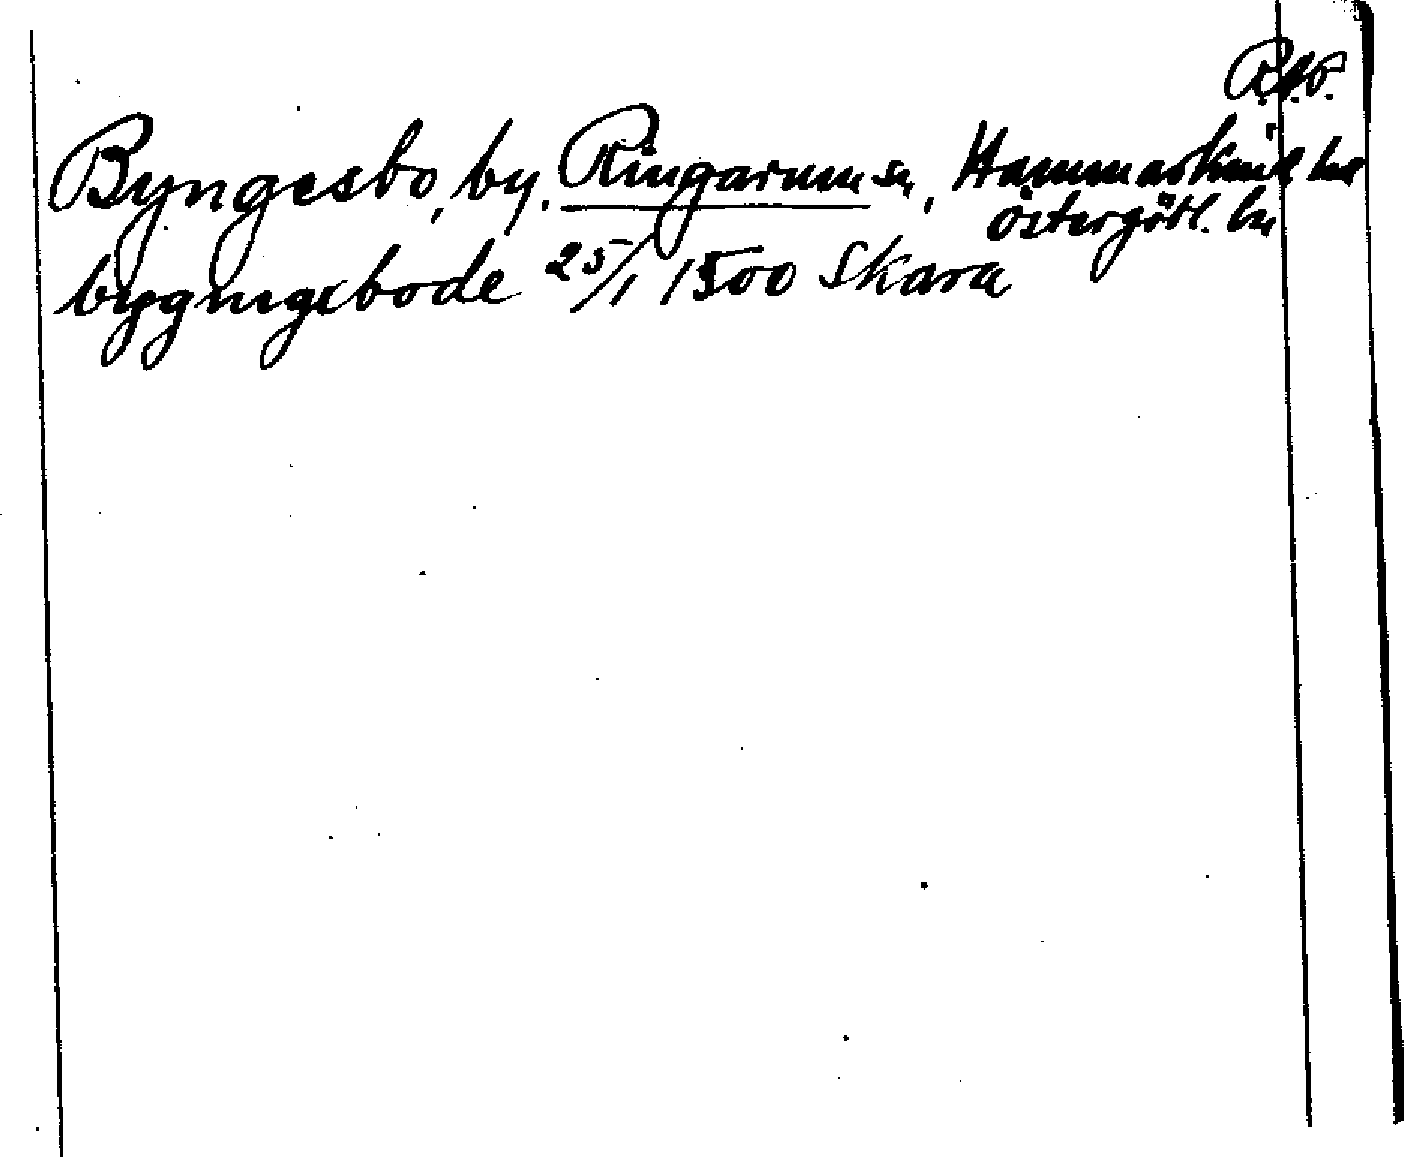 Byngesbo, by. Ringarum sn, Hammarkind hd
Östergötl. ln
bygnigxbode 25/1 1500 Skara